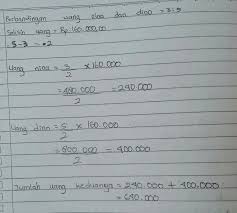 Perbandingan uang nina dan dino = 3:5
Selisih uang = Rp.160.000,00
5-3 = 2
Uang nina = 3/2 x 160.000
= 480.000/2 = 240.000
Uang dino = 5/2 x 160.000
= 800.000/2 = 400.000
Jumlah uang keduanya = 240.000 + 400.000
= 640.000